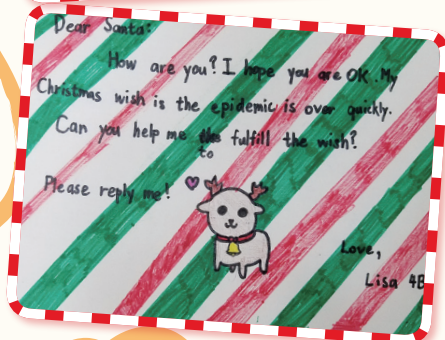 Dear Santa:
How are you? I hope you are OK. My
Christmas wish is the epidemic is over quickly.
Can you help me to fulfill the wish?
Please reply me!
Love,
Lisa 4B